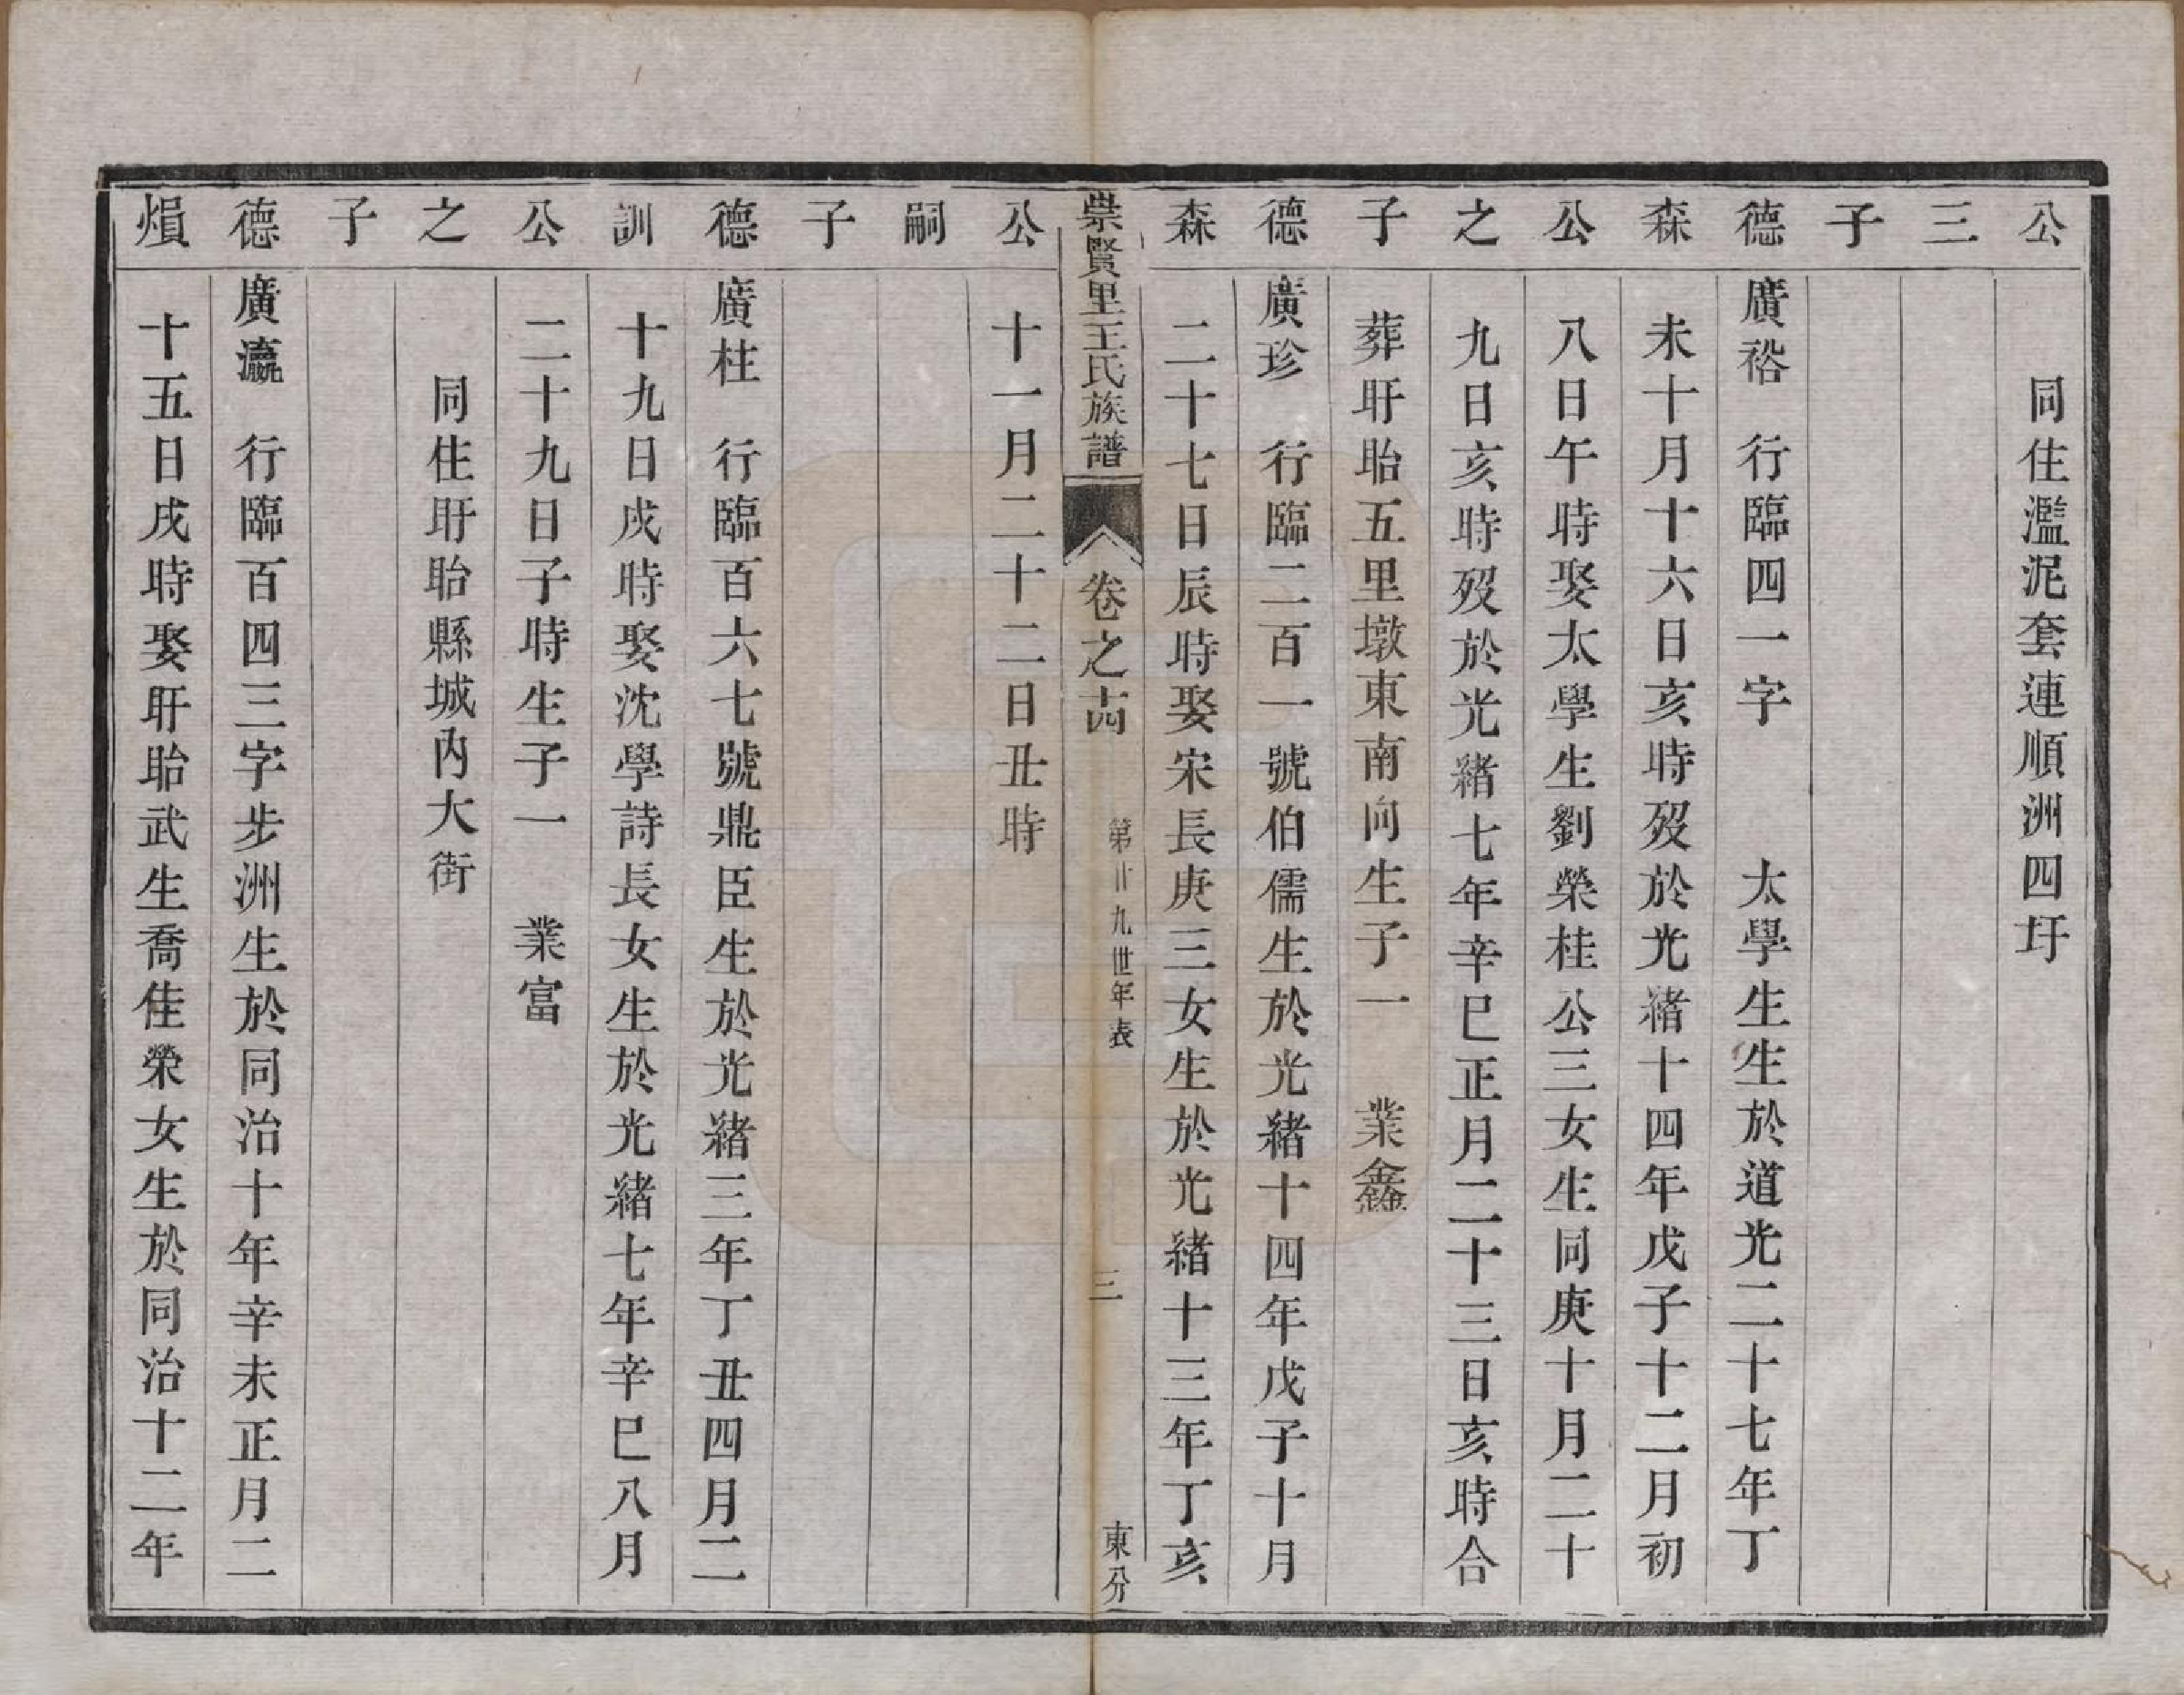 公 同住濫泥套連順洲四圩
三
子
德 廣裕 行臨四一字 太學生生於道光二十七年丁
森 未十月十六日亥時歿於光緒十四年戊子十二月初
公 八日午時娶太學生劉榮桂公三女生同庚十月二十
之 九日亥時歿於光緒七年辛巳正月二十三日亥時合
子 葬盱眙五里墩東南向生子一 業鑫
德 廣珍 行臨二百一號伯儒生於光緒十四年戊子十月
森 二十七日辰時娶宋長庚三女生於光緒十三年丁亥
崇賢里王氏族譜 卷之十四 第廿九世年表 三 東分
公 十一月二十二日丑時
嗣
子
德 廣柱 行臨百六七號鼎臣生於光緒三年丁丑四月二
訓 十九日戌時娶沈學詩長女生於光緒七年辛巳八月
公 二十九日子時生子一 業富
之 同住盱眙縣城內大街
子
德 廣瀛 行臨百四三字步洲生於同治十年辛未正月二
熉 十五日戌時娶盱眙武生喬佳榮女生於同治十二年